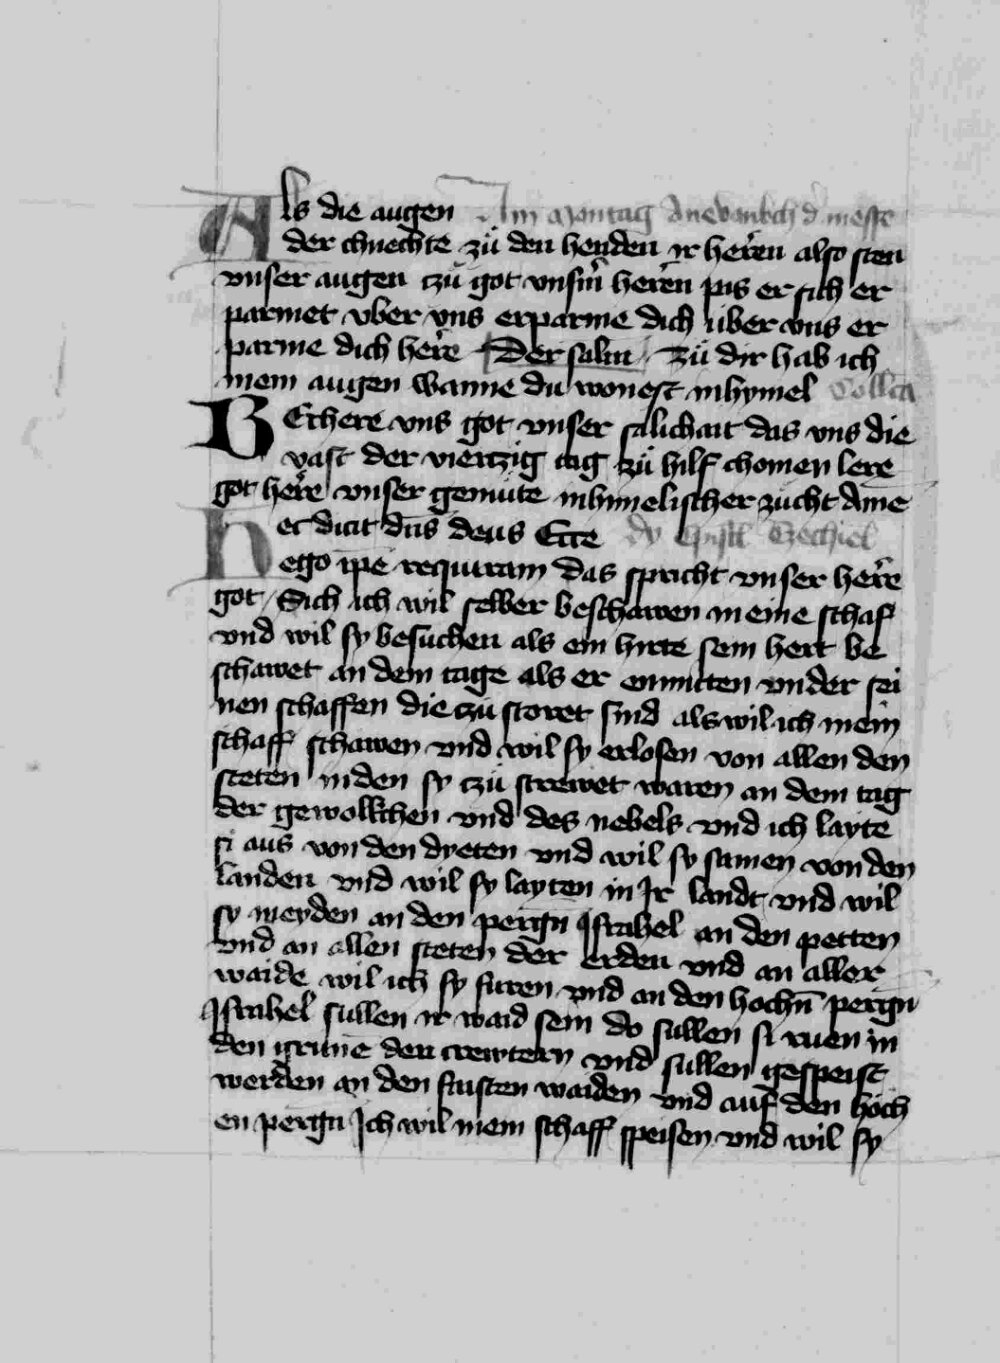 Als die augen Am Montag Anevankch d' messe
der chnechte zů den henden ir herren also sten
vnser augen zů got vnsm̄ herren pis er sich er
parmet vber vns erparme dich über vns er
parme dich herre Der salm Zů dir hab ich
mein augen wanne du wonest inhymel Coll̄ta
BEchere vns got vnser salichait das vns die
vast der viertzig tag zů hilf chomen lere
got herre vnser gemüte inhimelischer zucht Ame
Hec dicit dn̄s deus Ecce dy Epistl Ezechiel
ego ip̄e requiram das spricht vnser herre
got / Sich ich wil selber beschawen meine schaf
vnd wil sy besuchen als ein hirte sein hert be
schawet an dem tage als er enmitten vnder sei
nen schaffen die zů storet sind als wil ich mein
schaff schawen vnd wil sy erlosen von allen den
steten inden sy zů strewet waren an dem tag
der gewolkchen vnd des nebels vnd ich layte
si aus von den dyeten vnd wil sy samen von den
landen vnd wil sy layten in Ir landt vnd wil
sy weyden an den pergn̄ Israhel an den petten
vnd an allen steten der erden vnd an aller
waide wil ich sy furen vnd an den hochn̄ pergn
Israhel sullen ir waid sein do sullen si ruen in
den grune den crewtern vnd sullen gespeist
werden an den faisten waiden vnd auf den höch
en pergn Ich wil mein schaff speisen vnd wil sy